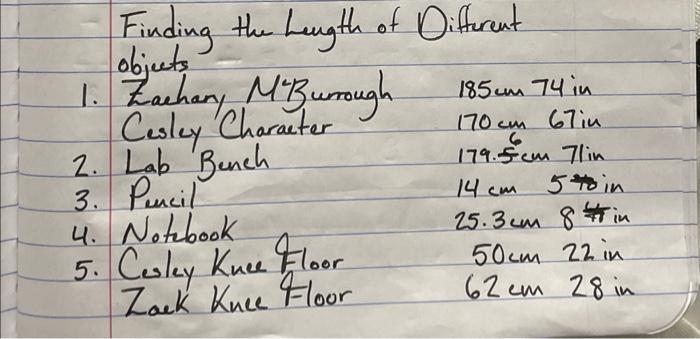 Finding the Length of Different
objects
1. Zachary McBurrough 185cm 74 in
Cesley Character 170 cm 67in
2. Lab Bench 179.6 cm 71in
3. Pencil 14 cm 5 in
4. Notebook 25.3 cm 8 in
5. Cesley Knee Floor 50cm 22 in
Zack Knee Floor 62 cm 28 in